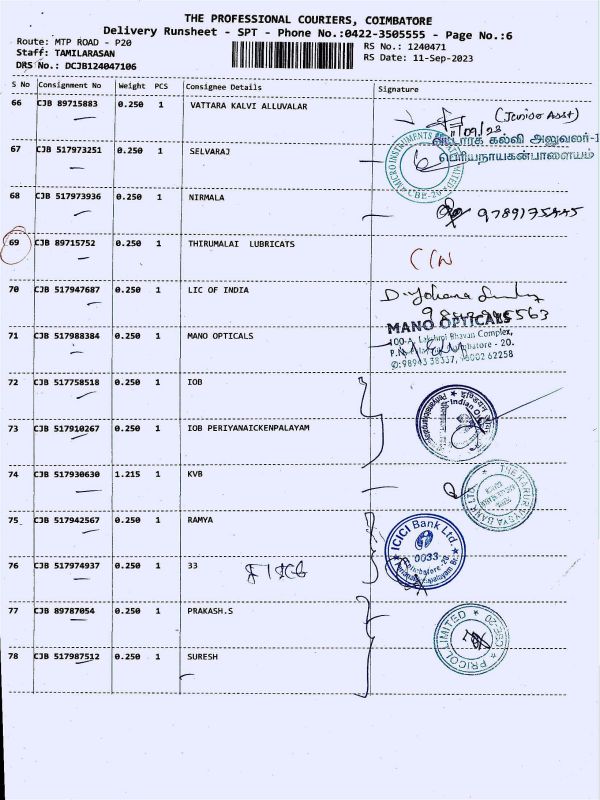 THE PROFESSIONAL COURIERS, COIMBATORE
Delivery Runsheet - SPT - Phone No.:0422-3505555 - Page No.:6
Route: MTP ROAD - P20
Staff: TAMILARASAN
DRS No.: DCJB124047106
RS No.: 1240471
RS Date: 11-Sep-2023
S No Consignment No Weight PCS Consignee Details Signature
66 CJB 89715883 0.250 1 VATTARA KALVI ALLUVALAR
(Junior Asst)
11/09/23
வட்டாரக் கல்வி அலுவலர்-1
பெரியநாயகன்பாளையம்
67 CJB 517973251 0.250 1 SELVARAJ
MICRO INSTRUMENTS LIMITED CBE-20
68 CJB 517973936 0.250 1 NIRMALA
69 CJB 89715752 0.250 1 THIRUMALAI LUBRICATS
70 CJB 517947687 0.250 1 LIC OF INDIA
71 CJB 517988384 0.250 1 MANO OPTICALS
MANO OPTICALS
100-A, Lakshmi Bhavan Complex,
Coimbatore - 20.
72 CJB 517758518 0.250 1 IOB
73 CJB 517910267 0.250 1 IOB PERIYANAICKENPALAYAM
74 CJB 517930630 1.215 1 KVB
THE KARUR VYSYA BANK LTD
75 CJB 517942567 0.250 1 RAMYA
ICICI Bank Ltd.
0033
Coimbatore-20
76 CJB 517974937 0.250 1 33
77 CJB 89787054 0.250 1 PRAKASH.S
PRICOL LIMITED CBE-20
78 CJB 517987512 0.250 1 SURESH